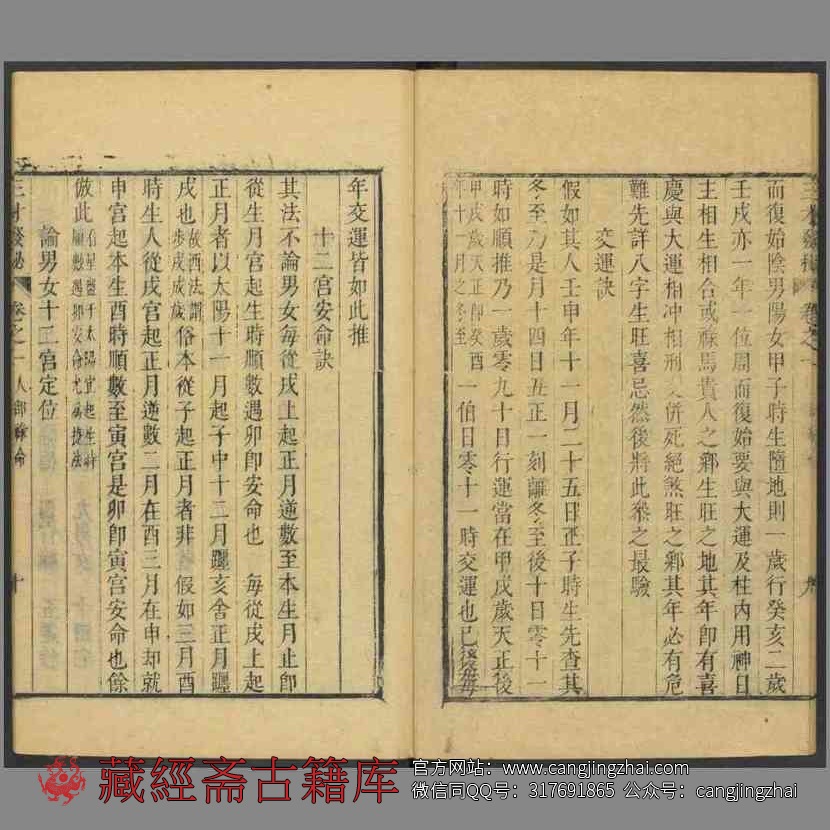 而復始陰男陽女甲子時生墮地則一歲行癸亥二歲
壬戌亦一年一位周而復始要與大運及柱內用神日
主相生相合或祿馬貴人之鄉生旺之地其年卽有喜
慶與大運相冲相刑 併死絕煞旺之鄉其年必有危
難先詳八字生旺喜忌然後將此叅之最驗
交運訣
假如其人壬申年十一月二十五日丑子時生先查其
冬至乃是月十四日丑正一刻離冬至後十日零十一
時如順推乃一歲零九十日行運當在甲戌歲天正後
甲戌歲天正卽癸酉
年十一月之冬至
一伯日零十一時交運也已後
三才發秘 卷之一
年交運皆如此推
十二宮安命訣
其法不論男女每從戌上起正月逆數至本生月止卽
從生月宮起生時順數遇卯卽安命也 每從戌上起
正月者以太陽十一月起子中十二月躔亥舍正月躔
戌也
故西法謂
步戌成歲
俗本從子起正月者非 假如三月酉
時生人從戌宮起正月逆數二月在酉三月在申却就
申宮起本生酉時順數至寅宮是卯卽寅宮安命也餘
倣此
看星盤于太陽宮起生時
順數遇卯安命尤為捷法
論男女十二宮定位
三才發秘 卷之一 人部祿命 十
藏經斋古籍库
官方网站：www.cangjingzhai.com
微信同QQ号：317691865 公众号：cangjingzhai